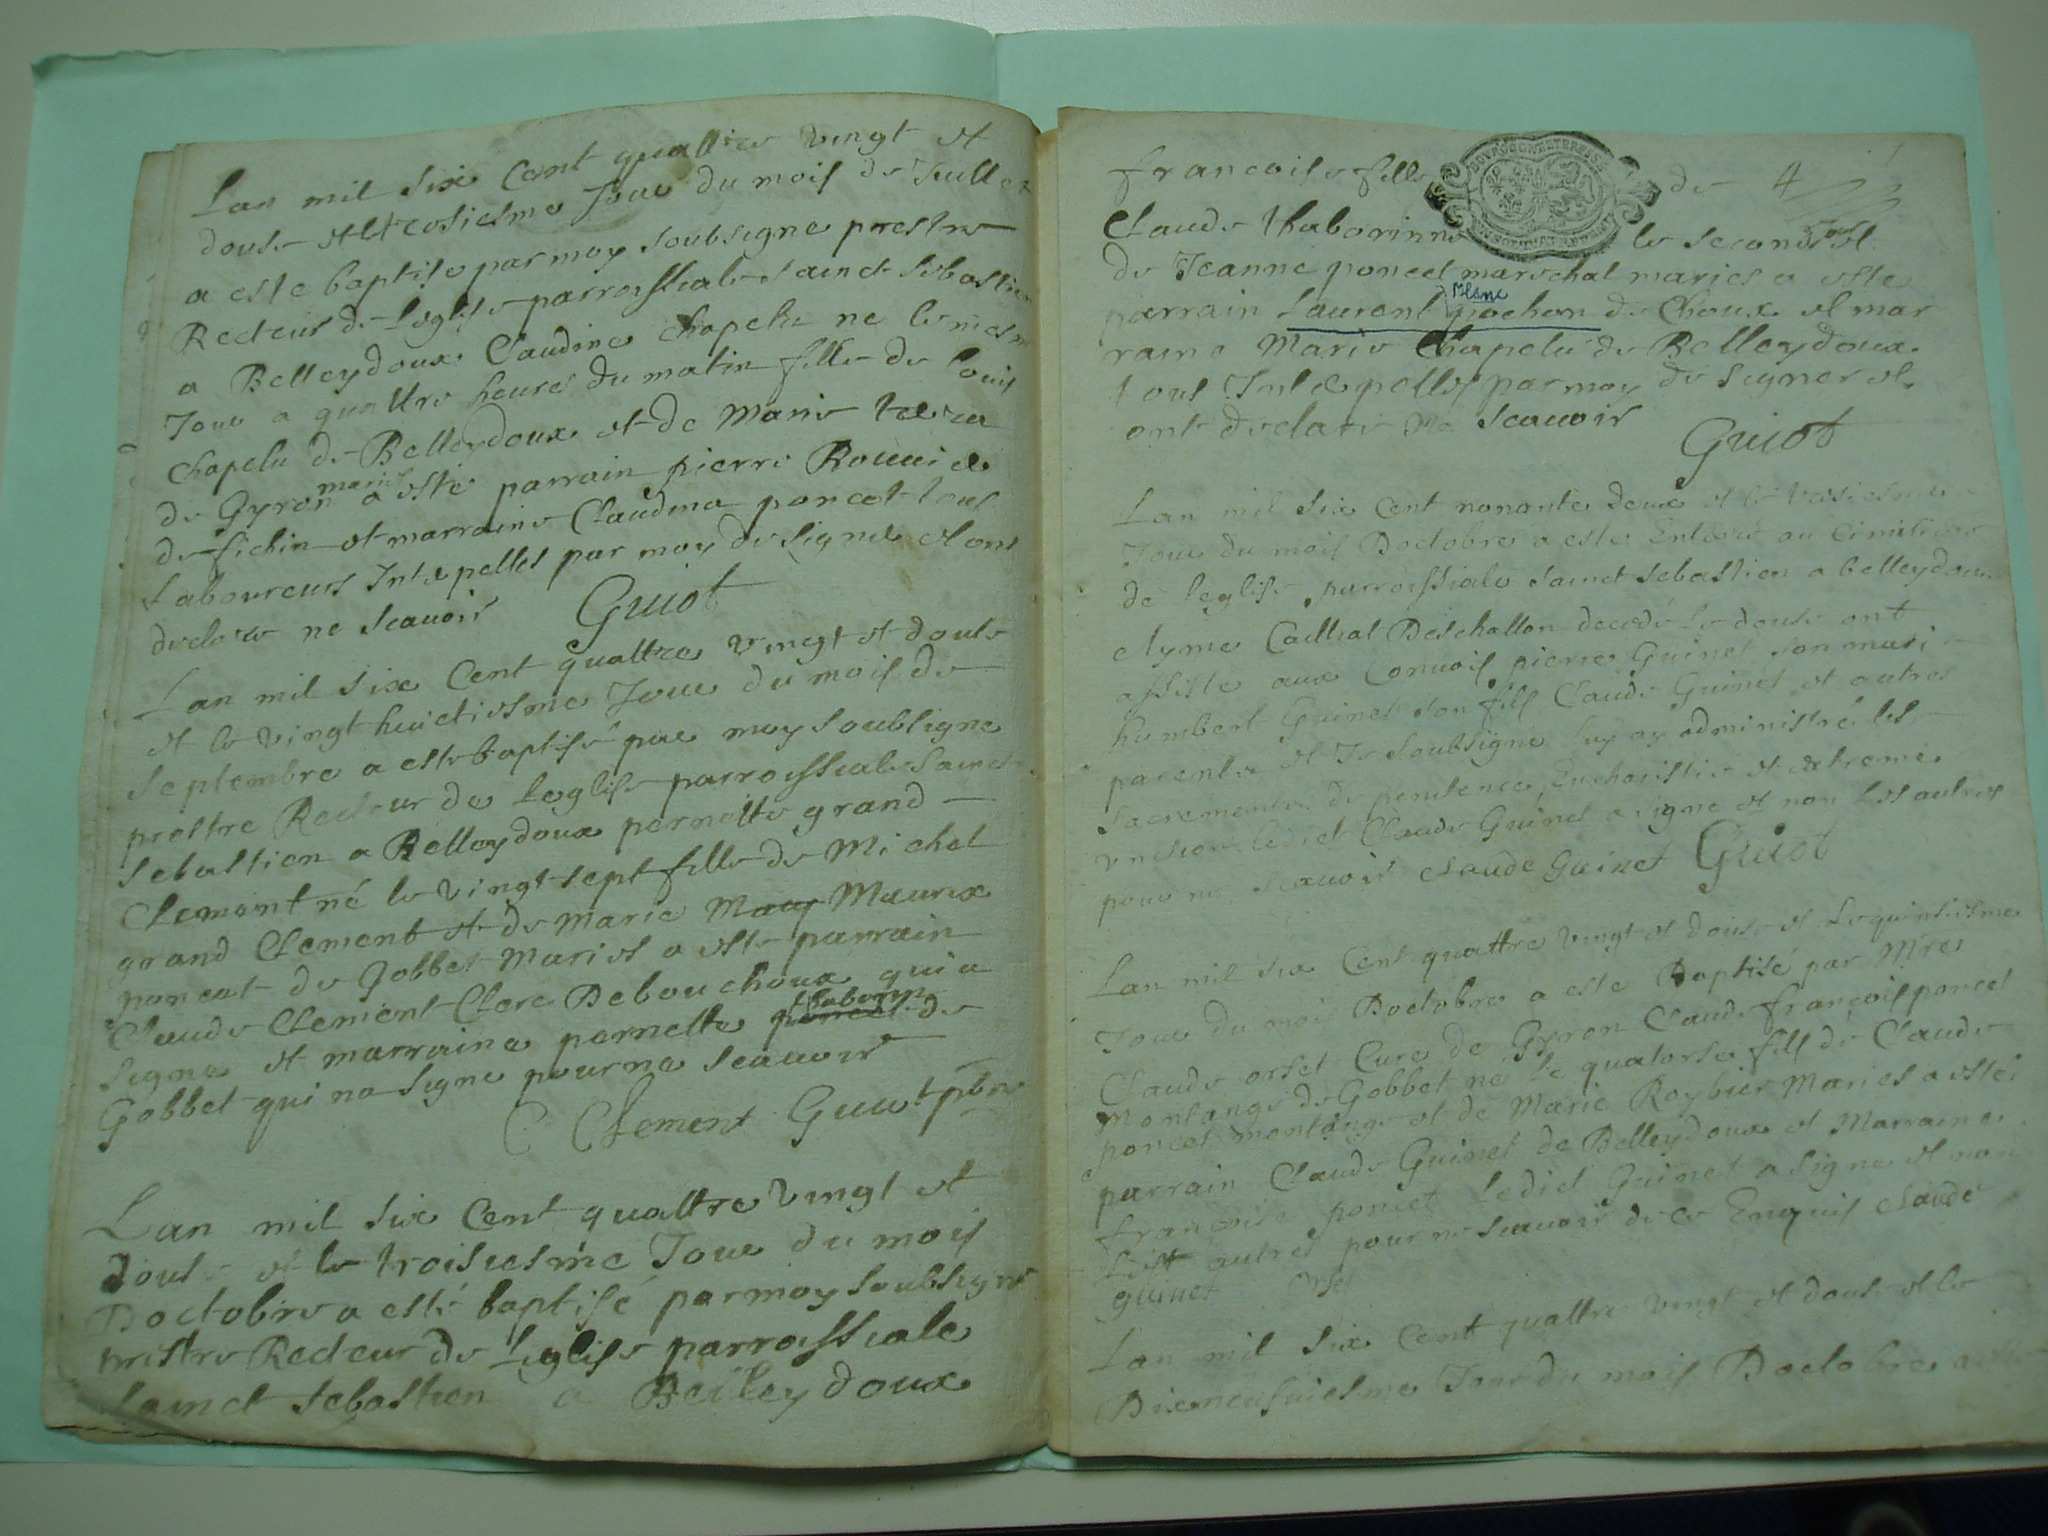 Lan mil six Cent quattre vingt et
douse et le trosiesme Jour du mois de Juillet
a este baptise par moy soubsigne prestre
Recteur de Leglise parroissiale sainct sebastien
a Belleydoux Claudine Chapelu ne le mesme
Jour a quattre heures du matin fille de Louis
Chapelu de Belleydoux et de Marie
mariés
de Gyron a esté parrain pierre
de fichin et marraine Claudina poncet tous
Laboureurs Interpelles par moy de signer et ont
declare ne scavoir Guiot
Lan mil six Cent quattre vingt et douse
et le vingt huictiesme Jour du mois de
Septembre a este baptisé par moy soubsigne
prestre Recteur de Leglise parroissiale Sainct
Sebastien a Belleydoux pernette grand
Clement né le vingt sept fille de Michel
grand Clement et de Marie May Maurix
poncet de Gobbet Maries a este parrain
Claude Clement Clerc Debouchoux qui a
thaborin
signe et marraine pernette poncet de
Gobbet qui na signe pour ne scauoir
C Clement Guiot pbre
Lan mil six Cent quattre vingt et
douse et le troisiesme Jour du mois
Doctobre a esté baptisé par moy soubsigne
prestre Recteur de Leglise parroissiale
sainct sebastien a Belleydoux
francoise fille de 4
BOURGONGNE ET BRESSE
Claude thaborinne le second et
de Jeanne poncet mareschal maries a este
blanc
parrain Laurent pochon de Choux et mar
raine Marie Chapelu de Belleydoux
tous Interpelles par moy de signer et
ont declare ne scauoir
Guiot
Lan mil six Cent nonante deux et le tresiesme
Jour du mois Doctobre a este Enterré au Cimitiere
de leglise parroissiale sainct sebastien a belleydoux
clyme Cailliat Deschallon decedé le douse ont
assiste aux Convois pierre Guinet son mari
humbert Guinet son fils Claude Guinet et autres
parents et Je soubsigne luy ay administré les
Sacrements de penitence, Eucharistie et extreme
unction ledict Claude Guinet a signe et non les autres
pour ne scauoir Claude Guinet Guiot
Lan mil six Cent quattre vingt et douse et le quinsiesme
Jour du mois Doctobre a este Baptisé par Mre
Claude orset Cure de Gyron Claude françois poncet
Montange de Gobbet ne le quatorse fils de Claude
poncet montange et de Marie Roybier Maries a esté
parrain Claude Guinet de Belleydoux et Marraine
françoise poncet Ledict Guinet a signe et non
Les autres pour ne scauoir de ce Enquis Claude
guinet orset
Lan mil six Cent quattre vingt et douse et le
Dixneufuiesme Jour du mois Doctobre a este